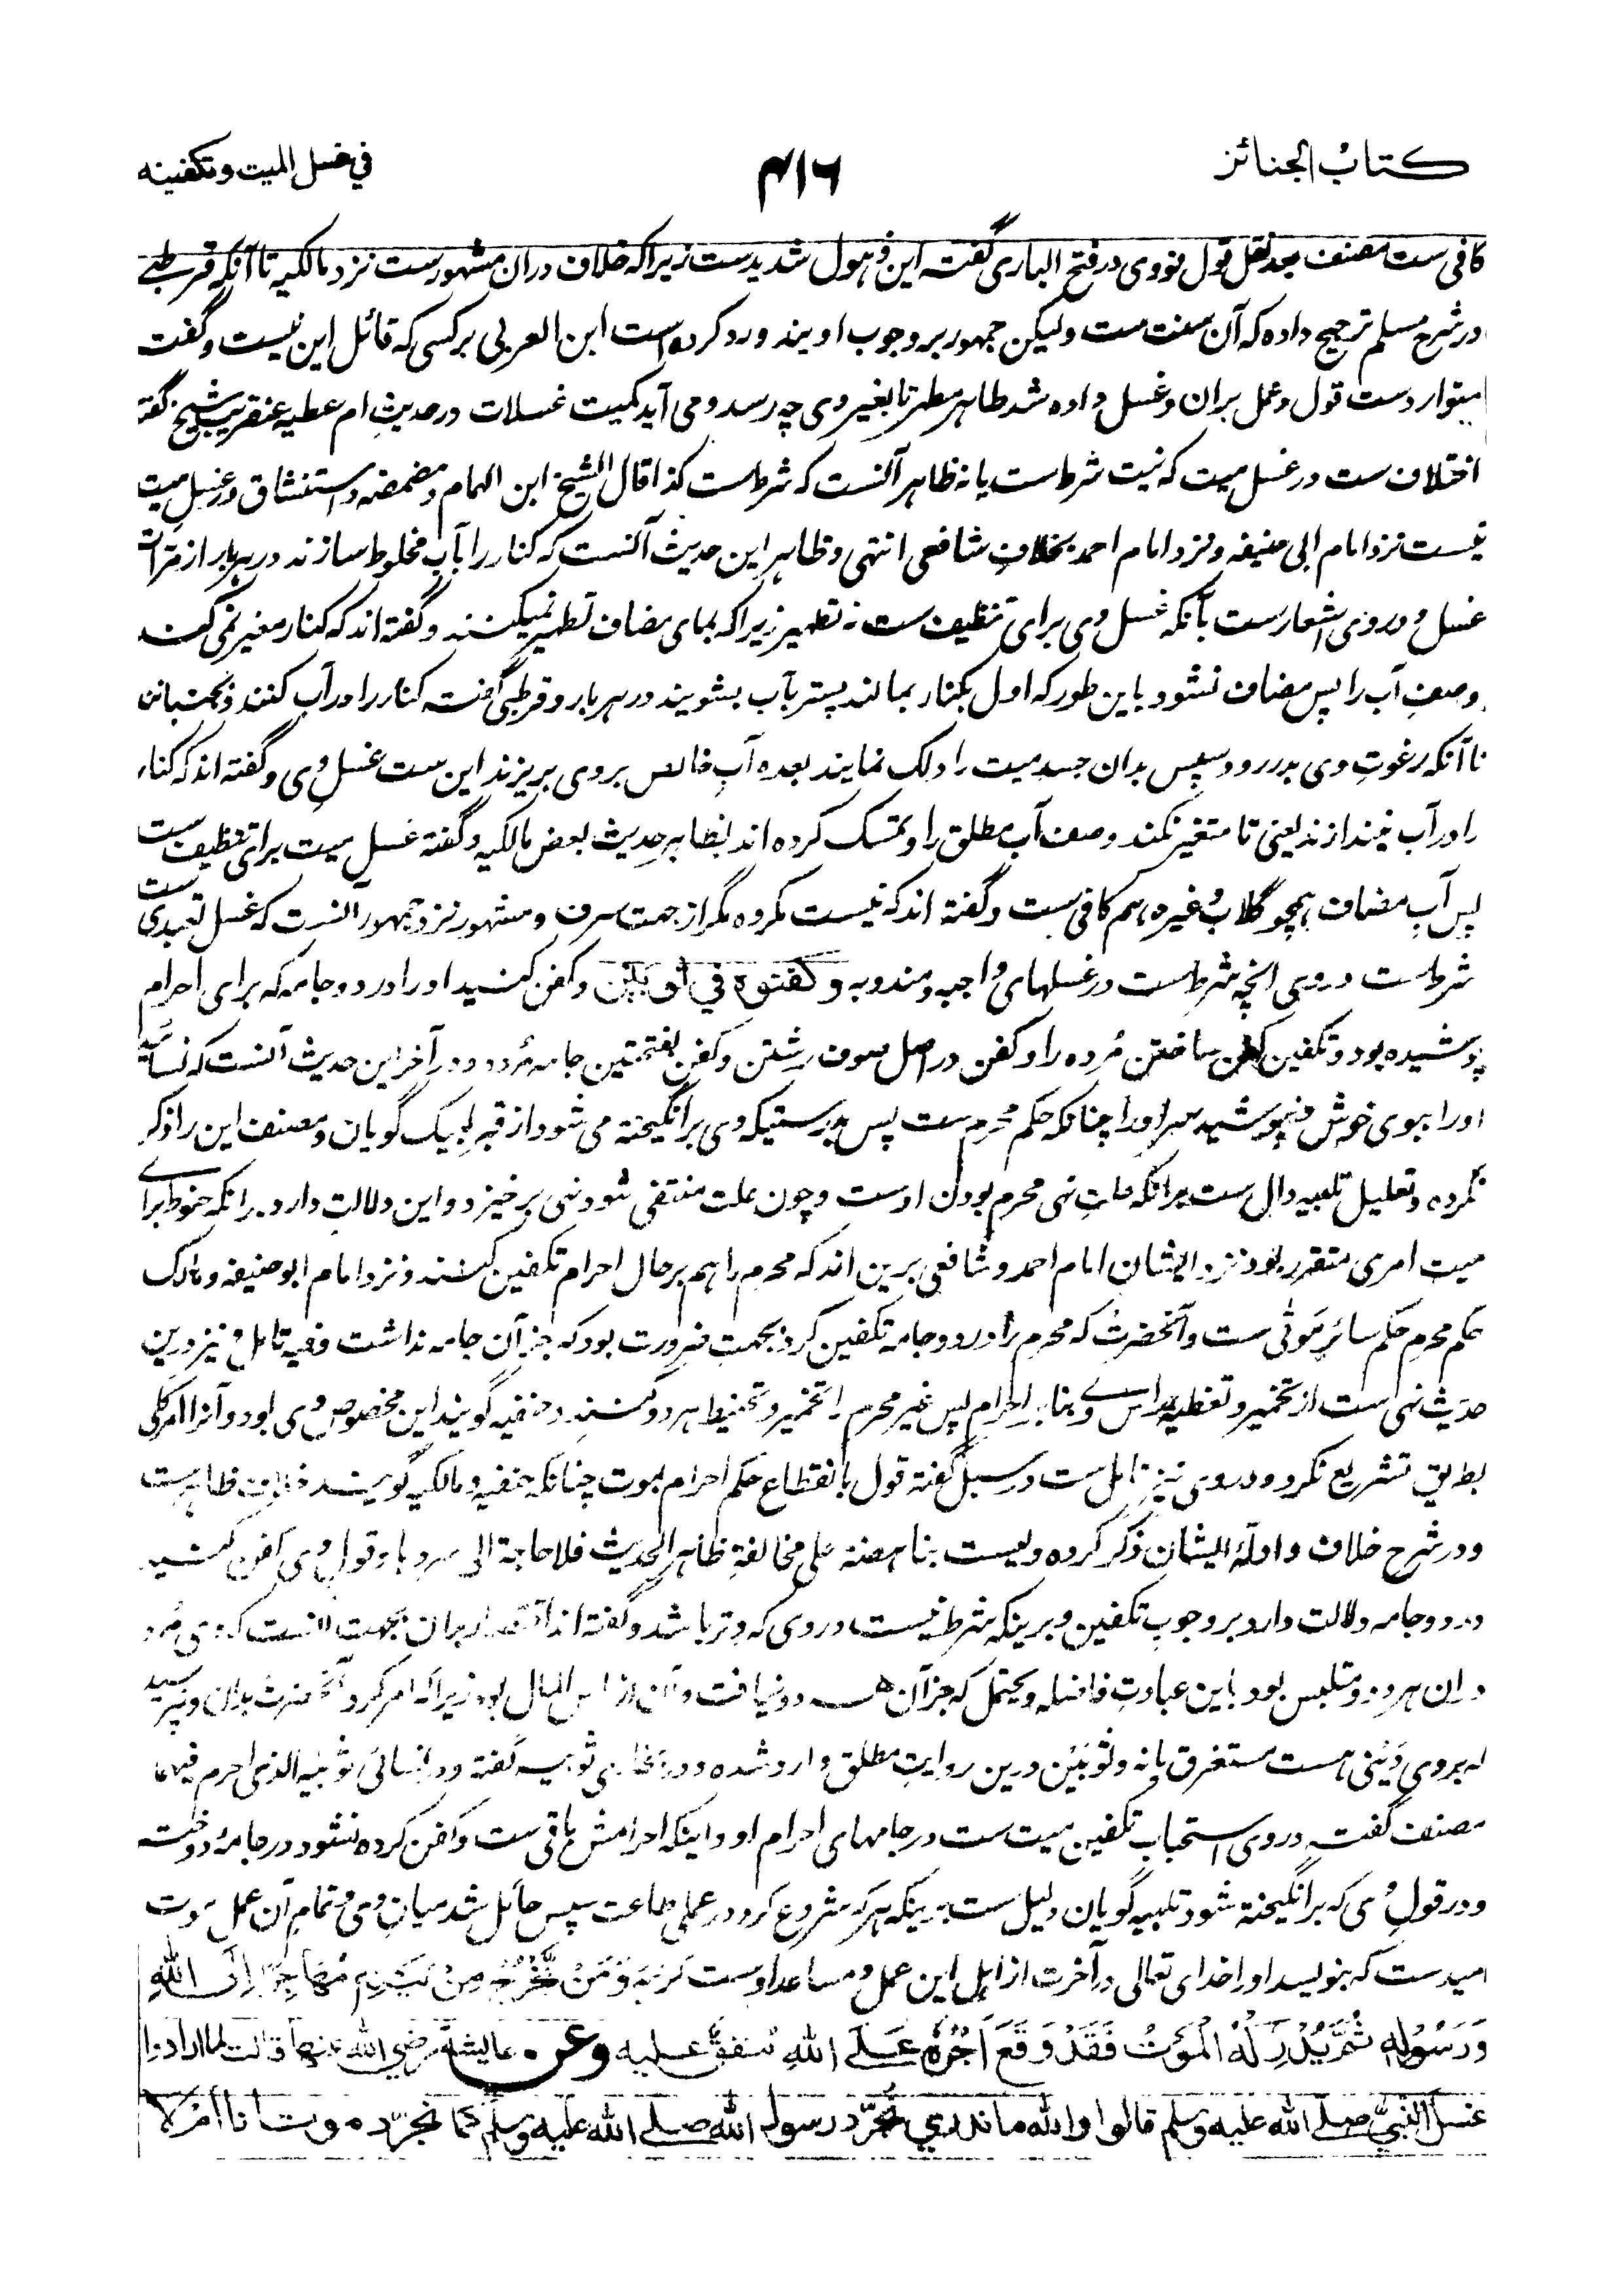 كتاب الجنائز
۴۱۶
في غسل الميت وتكفينه
کافی ست مصنف بعد نقل قول نووی در فتح الباری گفته این ذهول شدیدست زیراکه خلاف دران مشهورست نزد مالکیه تا آنکه قرطبی
در شرح مسلم ترجیح داده که آن سنت ست ولیکن جمهور بر وجوب اویند ورد کرده است ابن العربی بر کسی که قائل این نیست وگفت
متواردست قول وعمل بران وغسل داده شد طاهر مطهر تا بغیر وی چه رسد ومی آید کمیت غسلات در حدیث ام عطیه عنقریب شیخ گفته
اختلاف ست در غسل میت که نیت شرط است یا نه ظاهر آنست که شرط است کذا قال الشیخ ابن الهمام ومضمضه واستنشاق در غسل میت
نیست نزد امام ابی حنیفه ونزد امام احمد بخلاف شافعی انتهی وظاهر این حدیث آنست که کنار را بآب مخلوط سازند در هر بار از مرات
غسل ودر وی اشعارست بآنکه غسل وی برای تنظیف ست نه تطهیر زیراکه بمای مضاف تطهیر نمیکنند وگفته اند که کنار مغیر نمی کند
وصف آب را پس مضاف نشود باین طور که اول بکنار بمالند پستر بآب بشویند در هر بار وقرطبی گفته کنار را در آب کنند وبجنبانند
تا آنکه رغوت وی بدر رود سپس بدان جسد میت را دلک نمایند بعده آب خالص بروی بریزند این ست غسل وی وگفته اند که کنار
را در آب نیندازند یعنی تا متغیر نکند وصف آب مطلق را وتمسک کرده اند بظاهر حدیث بعض مالکیه وگفته غسل میت برای تنظیف ست
پس آب مضاف همچو گلاب وغیره هم کافی ست وگفته اند که نیست مکروه مگر از جهت سرف ومشهور نزد جمهور آنست که غسل تعبدی ست
شرط است در وی انچه شرط است در غسلهای واجبه ومندوبه وكفنوه في ثوبين وکفن کنید او را در دو جامه که برای احرام
پوشیده بود وتکفین کفن ساختن مرده را وکفن در اصل صوف رشتن وکفن بفتحتین جامه مرده ودر آخر این حدیث آنست که نسائید
او را ببوی خوش ونپوشید سر او را چنانکه حکم محرم ست پس بدرستیکه وی برانگیخته می شود از قبر لبیک گویان ومصنف این را ذکر
نکرده وتعلیل تلبیه دال ست برانکه علت نهی محرم بودن اوست وچون علت منتفی شود نهی برخیزد واین دلالت دارد برانکه حنوط برای
میت امری متقرر بود نزد ایشان امام احمد وشافعی برین اند که محرم را هم بر حال احرام تکفین کنند ونزد امام ابوحنیفه ومالک
حکم محرم حکم سائر موتی ست وآنحضرت که محرم را در دو جامه تکفین کرد بجهت ضرورت بود که جز آن جامه نداشت وفیه تامل ونیز درین
حدیث نهی ست از تخمیر وتغطیه راس وی بنابر احرام پس غیر محرم را تخمیر وتحنیط هر دو کنند وحنفیه گویند این مخصوص وی بود وآنرا امر کلی
بطریق تشریع نکرد ودر وی نیز تامل ست در سبل گفته قول بانقطاع حکم احرام بموت چنانکه حنفیه ومالکیه گویند خلاف ظاهرست
ودر شرح خلاف وادلۀ ایشان ذکر کرده ولیست بناهضة علی مخالفة ظاهر الحدیث فلا حاجة الی سردها وقول وی کفن کنید
در دو جامه دلالت دارد بر وجوب تکفین وبرینکه شرط نیست در وی که وتر باشد وگفته اند اقتصار بران بجهت آنست که وی مرد
دران هر دو ومتلبس بود باین عبادت فاضله ویحتمل که جز آن هر دو نیافت وآن از راس المال بود زیراکه امر کرد آنحضرت بدان ونپرسید
که بروی دینی هست مستغرق یا نه وثوبین درین روایت مطلق وارد شده ودر بخاری ثوبیه گفته ودر نسائی ثوبیه الذی احرم فیهما
مصنف گفته در وی استحباب تکفین میت ست در جامهای احرام او واینکه احرامش باقی ست وکفن کرده نشود در جامۀ دوخته
ودر قول وی که برانگیخته شود تلبیه گویان دلیل ست برینکه هر که شروع کرد در عمل طاعت سپس حائل شد میان وی وتمام آن عمل موت
امیدست که بنویسد او را خدای تعالی در آخرت از اهل این عمل ومساعد اوست کریمه وَمَنْ يَّخْرُجْ مِنْ بَيْتِهٖ مُهَاجِرًا اِلَى اللّٰهِ
وَرَسُوْلِهٖ ثُمَّ يُدْرِكْهُ الْمَوْتُ فَقَدْ وَقَعَ اَجْرُهٗ عَلَى اللّٰهِ متفق عليه وعن عايشة رضي الله عنها قالت لما ارادوا
غسل النبي صلى الله عليه وسلم قالوا والله ما ندري نجرد رسول الله صلى الله عليه وسلم كما نجرد موتانا ام لا